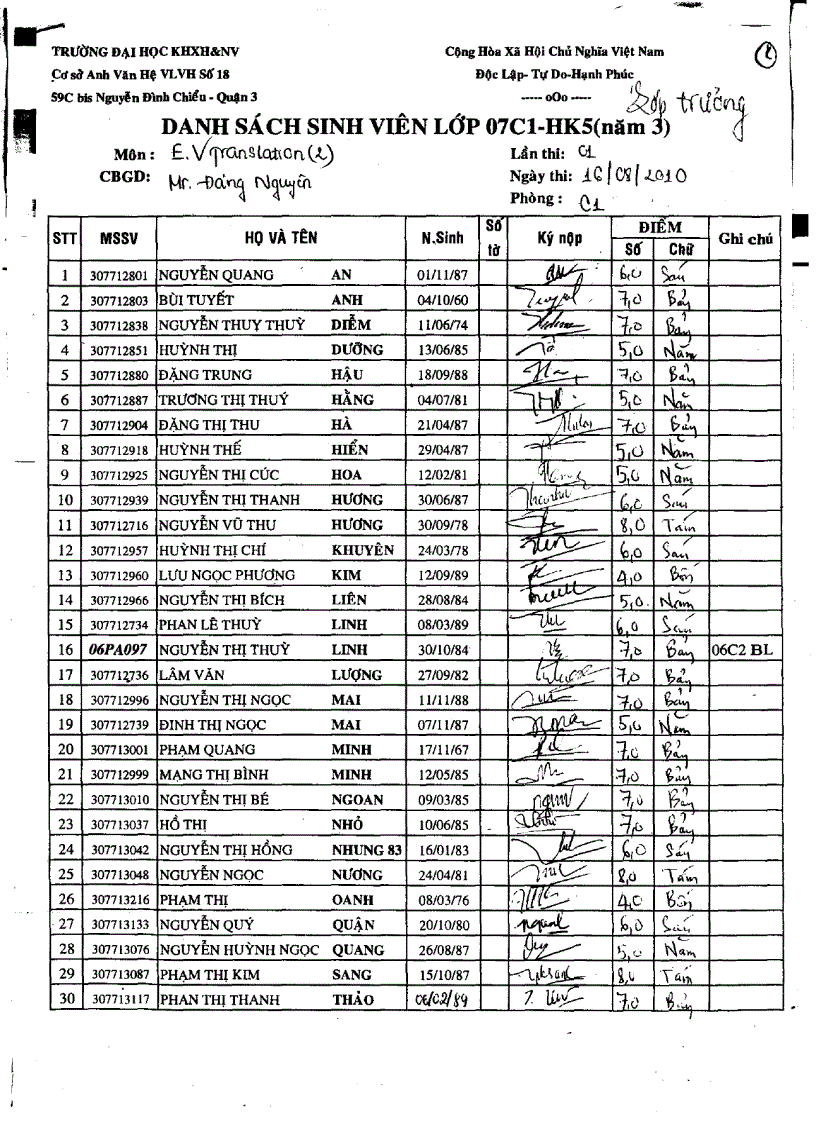 TRƯỜNG ĐẠI HỌC KHXH&NV
Cơ sở Anh Văn Hệ VLVH Số 18
59C bis Nguyễn Đình Chiểu - Quận 3
Cộng Hòa Xã Hội Chủ Nghĩa Việt Nam
Độc Lập- Tự Do-Hạnh Phúc
----- oOo -----
Lớp trưởng
DANH SÁCH SINH VIÊN LỚP 07C1-HK5(năm 3)
Môn : E.V Translation (2)
CBGD: Mr. Đăng Nguyên
Lần thi: 01
Ngày thi: 16/08/2010
Phòng : C1
STT MSSV HỌ VÀ TÊN N.Sinh Số tờ Ký nộp ĐIỂM Ghi chú
Số Chữ
1 307712801 NGUYỄN QUANG AN 01/11/87 6,0 Sáu
2 307712803 BÙI TUYẾT ANH 04/10/60 7,0 Bảy
3 307712838 NGUYỄN THUỴ THUỲ DIỄM 11/06/74 7,0 Bảy
4 307712851 HUỲNH THỊ DƯỠNG 13/06/85 5,0 Năm
5 307712880 ĐẶNG TRUNG HẬU 18/09/88 7,0 Bảy
6 307712887 TRƯƠNG THỊ THUÝ HẰNG 04/07/81 5,0 Năm
7 307712904 ĐẶNG THỊ THU HÀ 21/04/87 7,0 Bảy
8 307712918 HUỲNH THẾ HIỂN 29/04/87 5,0 Năm
9 307712925 NGUYỄN THỊ CÚC HOA 12/02/81 5,0 Năm
10 307712939 NGUYỄN THỊ THANH HƯƠNG 30/06/87 6,0 Sáu
11 307712716 NGUYỄN VŨ THU HƯƠNG 30/09/78 8,0 Tám
12 307712957 HUỲNH THỊ CHÍ KHUYÊN 24/03/78 6,0 Sáu
13 307712960 LƯU NGỌC PHƯƠNG KIM 12/09/89 4,0 Bốn
14 307712966 NGUYỄN THỊ BÍCH LIÊN 28/08/84 5,0 Năm
15 307712734 PHAN LÊ THUỲ LINH 08/03/89 6,0 Sáu
16 06PA097 NGUYỄN THỊ THUỲ LINH 30/10/84 7,0 Bảy 06C2 BL
17 307712736 LÂM VĂN LƯỢNG 27/09/82 7,0 Bảy
18 307712996 NGUYỄN THỊ NGỌC MAI 11/11/88 7,0 Bảy
19 307712739 ĐINH THỊ NGỌC MAI 07/11/87 5,0 Năm
20 307713001 PHẠM QUANG MINH 17/11/67 7,0 Bảy
21 307712999 MẠNG THỊ BÌNH MINH 12/05/85 7,0 Bảy
22 307713010 NGUYỄN THỊ BÉ NGOAN 09/03/85 7,0 Bảy
23 307713037 HỒ THỊ NHỎ 10/06/85 7,0 Bảy
24 307713042 NGUYỄN THỊ HỒNG NHUNG 83 16/01/83 6,0 Sáu
25 307713048 NGUYỄN NGỌC NƯƠNG 24/04/81 8,0 Tám
26 307713216 PHẠM THỊ OANH 08/03/76 4,0 Bốn
27 307713133 NGUYỄN QUÝ QUẬN 20/10/80 6,0 Sáu
28 307713076 NGUYỄN HUỲNH NGỌC QUANG 26/08/87 5,0 Năm
29 307713087 PHẠM THỊ KIM SANG 15/10/87 8,0 Tám
30 307713117 PHAN THỊ THANH THẢO 06/02/89 7,0 Bảy